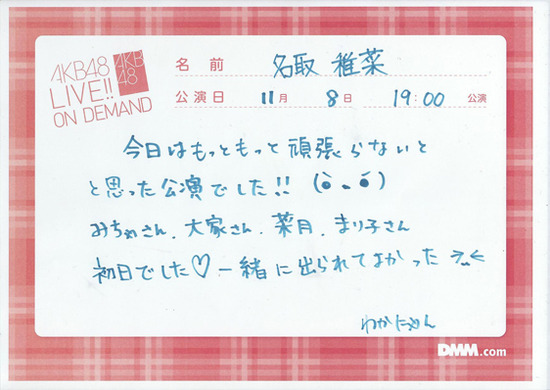 AKB48
LIVE!!
ON DEMAND
AKB
48
名前 名取 稚菜
公演日 11月 8日 19:00 公演
今日はもっともっと頑張らないと
と思った公演でした!!
みちゃさん、大家さん、菜月、まり子さん
初日でした♡一緒に出られてよかった
わかにゃん
DMM.com